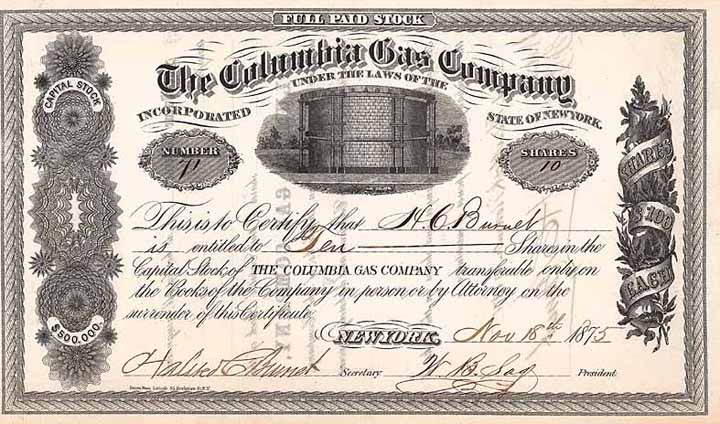 FULL PAID STOCK
The Columbia Gas Company
INCORPORATED UNDER THE LAWS OF THE STATE OF NEW YORK.
CAPITAL STOCK
$500,000.
NUMBER
71
SHARES
10
SHARES
$100
EACH
This is to Certify that H. C. Burnet
is entitled to Ten Shares in the
Capital Stock of THE COLUMBIA GAS COMPANY transferable only on
the Books of the Company in person or by Attorney on the
surrender of this Certificate.
NEW YORK, Nov 18th 1875
Halsted C Burnet Secretary W. B. President